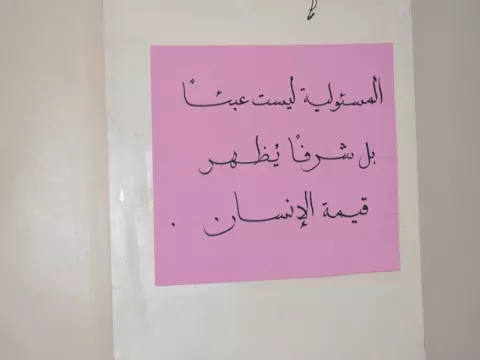 المسئولية ليست عبئًا
بل شرفًا يُظهر
قيمة الإنسان .